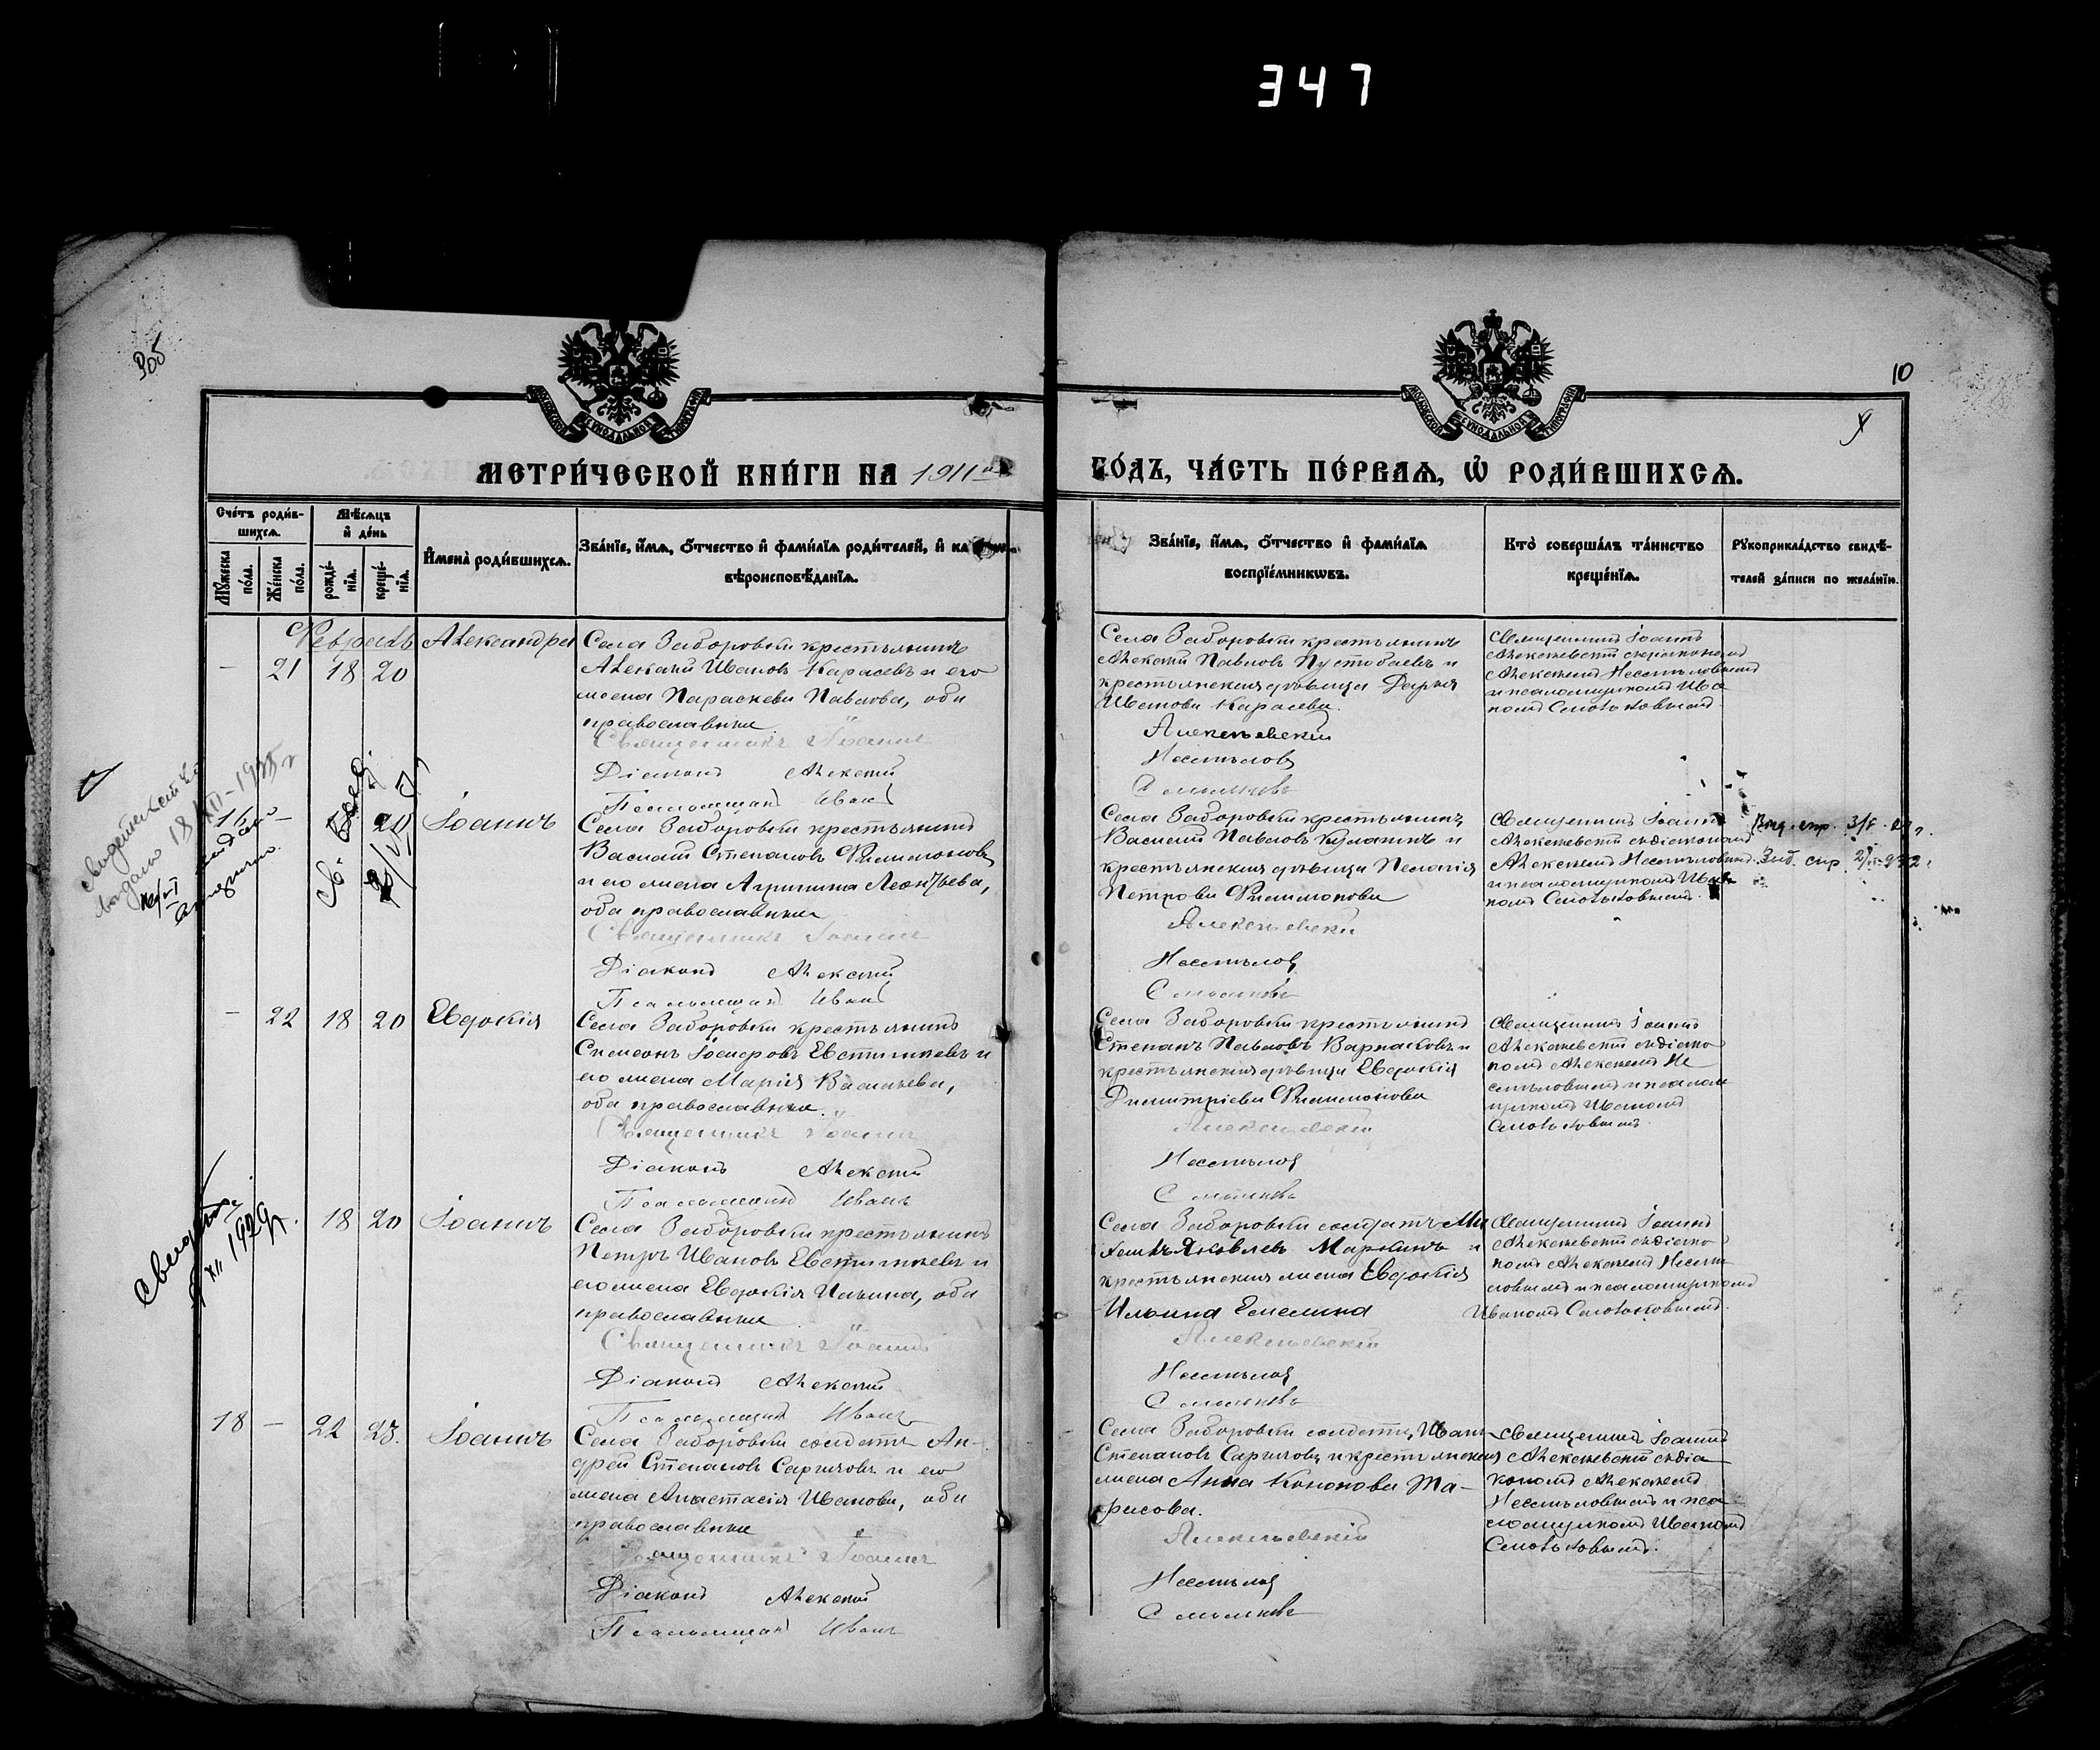 347
10
МОСКОВСКОЙ СѴНОДАЛЬНОЙ ТИПОГРАФІИ
МОСКОВСКОЙ СѴНОДАЛЬНОЙ ТИПОГРАФІИ
МЕТРИ́ЧЕСКОЙ КНИ́ГИ НА 1911
ГО́ДЪ, ЧА́СТЬ ПЕ́РВАѦ, Ѡ҆ РОДИ́ВШИХСѦ.
Сче́тъ роди́в-
шихсѧ.
Мꙋ́жеска
по́ла.
Же́нска
по́ла.
Мѣ́сѧцъ
и҆ де́нь
рожде́-
нїѧ.
креще́-
нїѧ.
И҆мена̀ роди́вшихсѧ.
Зва́нїе, и҆́мѧ, ѻ҆́тчество и҆ фами́лїѧ роди́телей, и҆
вѣроисповѣ́данїѧ.
Зва́нїе, и҆́мѧ, ѻ҆́тчество и҆ фами́лїѧ
воспрїе́мникѡвъ.
Кто̀ соверша́лъ та́инство
креще́нїѧ.
Рꙋкоприкла́дство свидѣ́-
телей за́писи по жела́нїю.
Февраль
— 21 18 20
Александра
Села Заборовки крестьянинъ
Алексѣй Ивановъ Карасевъ и его
жена Параскева Павлова, оба
православные
Священникъ Іоаннъ
Діаконъ Алексѣй
Псаломщикъ Иванъ
Села Заборовки крестьянинъ
Алексѣй Павловъ Пустобаевъ и
крестьянская дѣвица Дарья
Иванова Карасева.
Алексѣевскій
Несмѣловъ
Смольковъ
Священникъ Іоаннъ
Алексѣевскій съ діакономъ
Алексѣемъ Несмѣловымъ
и псаломщикомъ Ива
номъ Смольковымъ.
20
Іоаннъ
Села Заборовки крестьянинъ
Василій Степановъ Филимоновъ
и его жена Агрипина Леонтьева,
оба православные
Священникъ Іоаннъ
Діаконъ Алексѣй
Псаломщикъ Иванъ
Села Заборовки крестьянинъ
Василій Павловъ и
крестьянская дѣвица Пелагія
Петрова Филимонова
Алексѣевскій
Несмѣловъ
Смольковъ
Священникъ Іоаннъ
Алексѣевскій съ діакономъ
Алексѣемъ Несмѣловымъ
и псаломщикомъ Ива
номъ Смольковымъ.
— 22 18 20
Евдокія
Села Заборовки крестьянинъ
Симеонъ Евстигнеевъ и
его жена Марія Васильева,
оба православные.
Священникъ Іоаннъ
Діаконъ Алексѣй
Псаломщикъ Иванъ
Села Заборовки крестьянинъ
Степанъ Павловъ и
крестьянская дѣвица Евдокія
Димитріева Филимонова
Алексѣевскій
Несмѣловъ
Смольковъ
Священникъ Іоаннъ
Алексѣевскій съ діако
номъ Алексѣемъ Не
смѣловымъ и псалом
щикомъ Иваномъ
Смольковымъ.
18 20
Іоаннъ
Села Заборовки крестьянинъ
Петръ Ивановъ Евстигнеевъ и
его жена Евдокія Ильина, оба
православные
Священникъ Іоаннъ
Діаконъ Алексѣй
Псаломщикъ Иванъ
Села Заборовки солдатъ Ми
хаилъ Яковлевъ Маркинъ и
крестьянская жена Евдокія
Ильина Емелина
Алексѣевскій
Несмѣловъ
Смольковъ
Священникъ Іоаннъ
Алексѣевскій съ діако
номъ Алексѣемъ Несмѣ
ловымъ и псаломщикомъ
Иваномъ Смольковымъ.
18 — 22 23.
Іоаннъ
Села Заборовки солдатъ Ан-
дрей Степановъ Саргизовъ и его
жена Анастасія Иванова, оба
православные
Священникъ Іоаннъ
Діаконъ Алексѣй
Псаломщикъ Иванъ
Села Заборовки солдатъ Иванъ
Степановъ Саргизовъ и крестьянская
жена Анна Кононова Та-
расова.
Алексѣевскій
Несмѣловъ
Смольковъ
Священникъ Іоаннъ
Алексѣевскій съ діа
кономъ Алексѣемъ
Несмѣловымъ и пса
ломщикомъ Иваномъ
Смольковымъ.